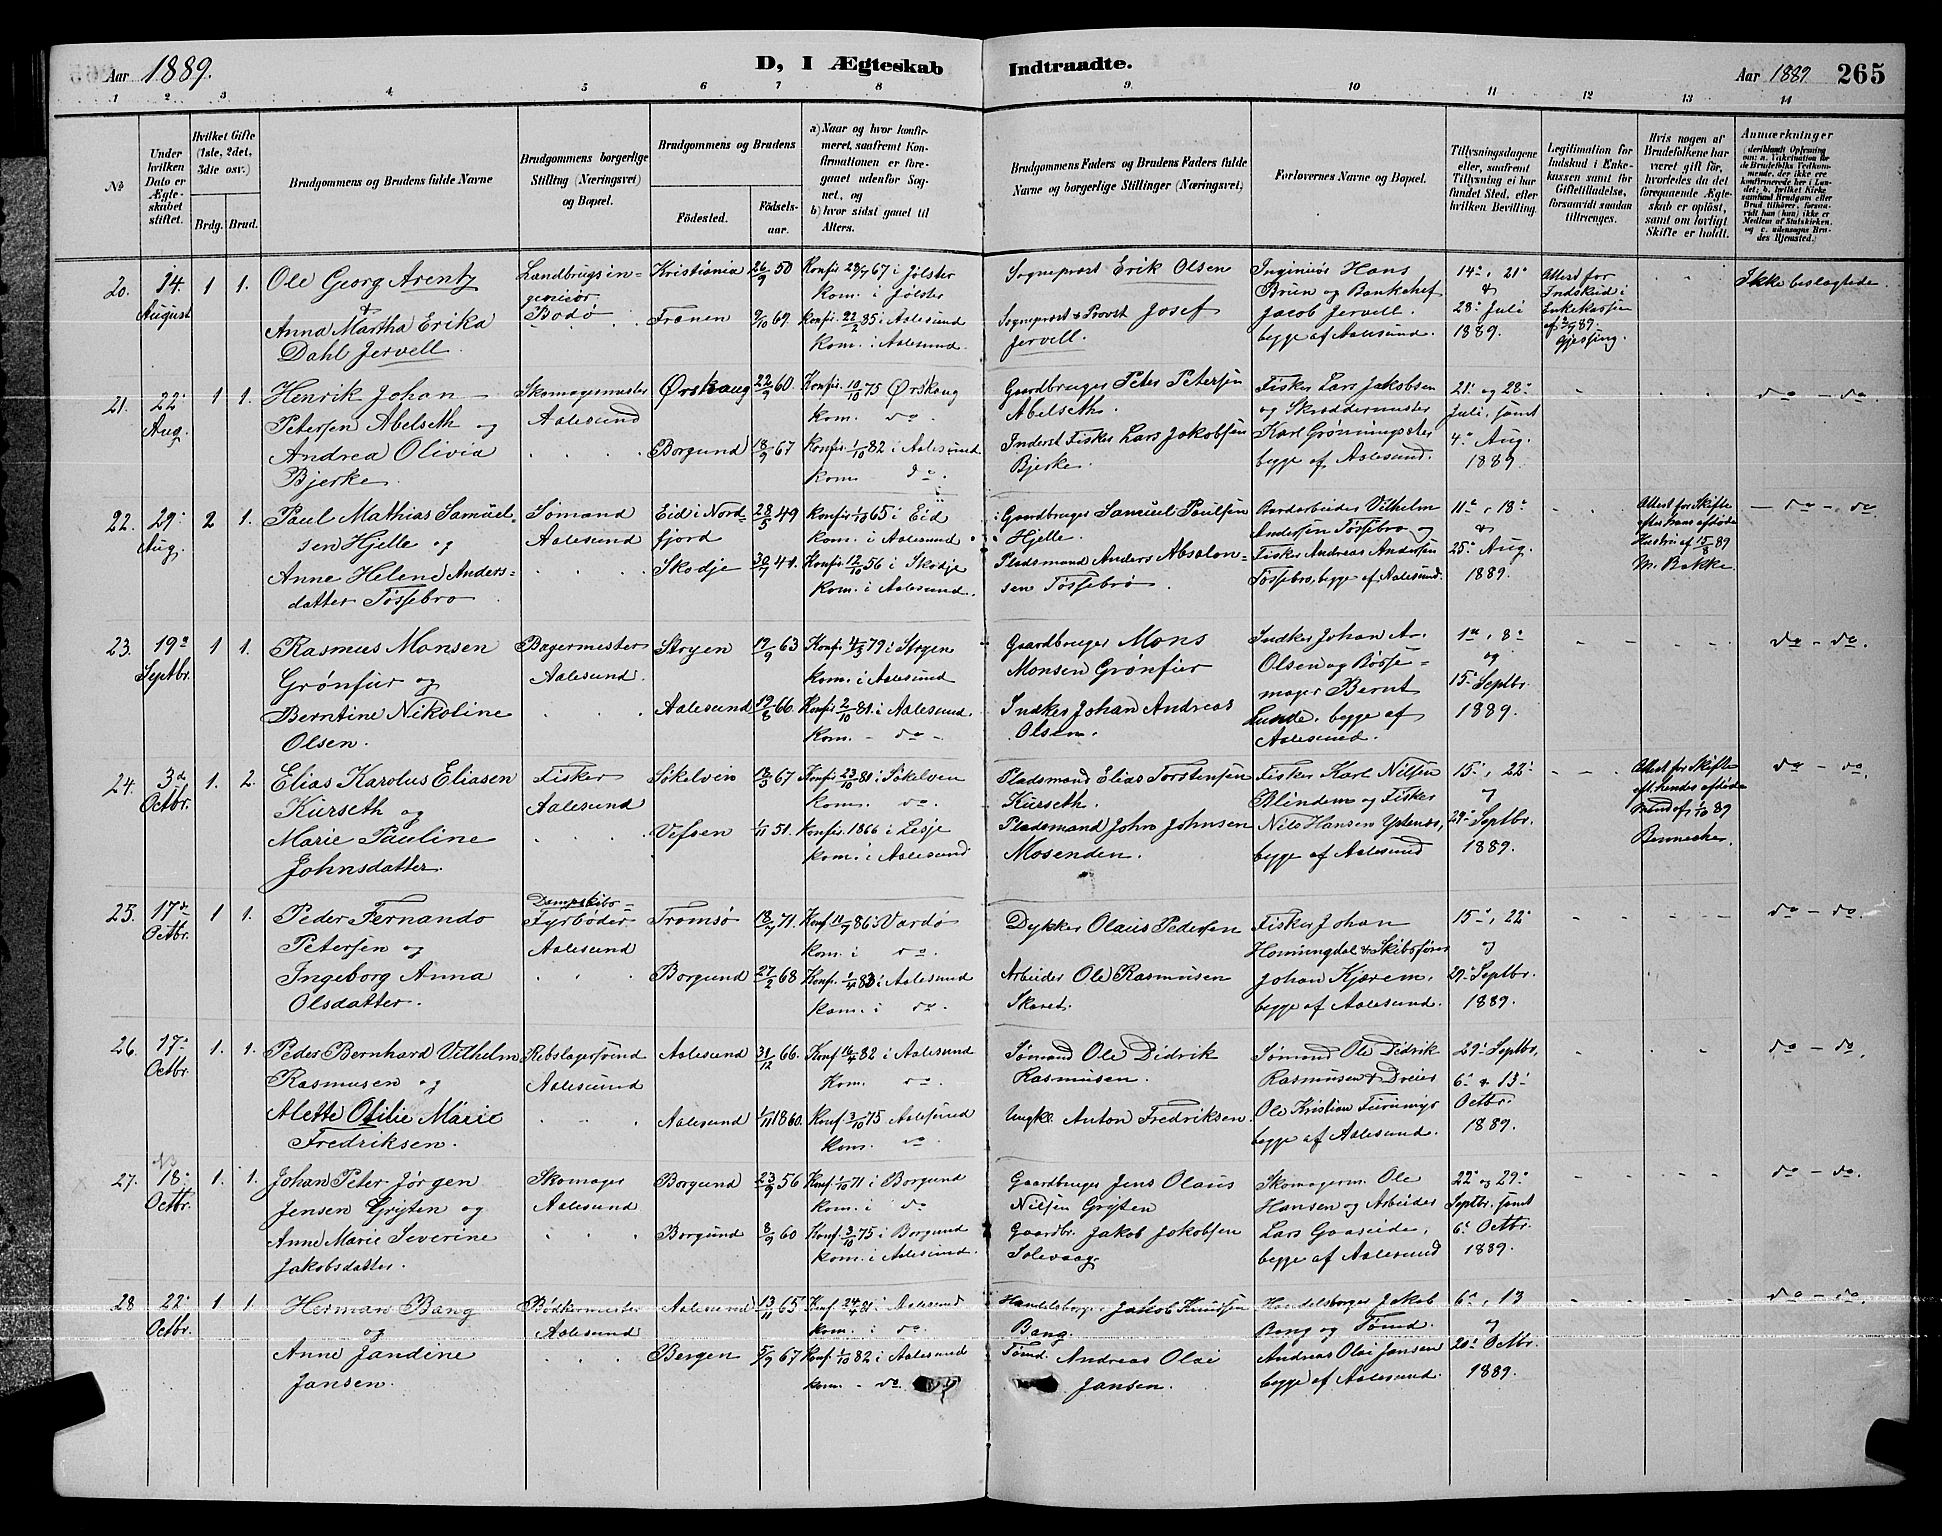 Aar 1889.
D, I Ægteskab Indtraadte.
Aar 1889. 265
1 2 3 4 5 6 7 8 9 10 11 12 13 14
No
Under hvilken Dato er Ægteskabet stiftet.
Hvilket Gifte (1ste, 2det, 3die osv.)
Brdg. Brud.
Brudgommens og Brudens fulde Navne
Brudgommens borgerlige Stilling (Næringsvei) og Bopæl.
Brudgommens og Brudens
Födested. Födselsaar.
a) Naar og hvor konfirmeret, saafremt Konfirmationen er foregaaet udenfor Sognet, og
b) hvor sidst gaaet til Alters.
Brudgommens Faders og Brudens Faders fulde Navne og borgerlige Stillinger (Næringsvei)
Forlovernes Navne og Bopæl.
Tillysningsdagene eller, saafremt Tillysning ei har fundet Sted, efter hvilken Bevilling.
Legitimation for Indskud i Enkekassen samt for Giftetilladelse, forsaavidt saadan tiltrænges.
Hvis nogen af Brudefolkene har været gift för, hvorledes da det foregaaende Ægteskab er oplöst, samt om lovligt Skifte er holdt.
Anmærkninger
20. 14. August 1 1.
Ole Georg Arentz
&
Anna Martha Erika
Dahl Jervell.
Landbrugsingeniör
Bodö
Kristiania 26/9 50
Konf. 28/4 67 i Jølster
Kom. i Jølster
Frænen 9/10 69.
Konfir. 22/2 85 i Aalesund
Kom. i Aalesund.
Sogneprest Erik Olsen
Sogneprest & Provst Josef
Jervell.
Ingeniør Hans
Brun og Bankchef
Jacob Jervell.
begge af Aalesund.
14de, 21de
&
28de Juli
1889.
Attest for
Indskud i
Enkekassen
Ikke beslægtede.
21. 22de Aug. 1 1.
Henrik Johan
Petersen Abelseth og
Andrea Olivia
Bjerke
Skomagermester
Aalesund
Ørskaug 22/9 60.
Konfir. 10/10 75 Ørskaug
Kom. do.
Borgund 18/9 67
Konfir. 1/10 82 i Aalesund
Kom. do.
Gaardbruger Peter Petersen
Abelseth.
Inderst Fisker Lars Jakobsen
Bjerke.
Fisker Lars Jakobsen
og Skræddermester
Karl Grønningsæter
begge af Aalesund.
21de og 28de
Juli, samt
4de Aug.
1889.
do - do.
22. 29de Aug. 2 1.
Paul Mathias Samuelsen
Hjelle og
Anne Helene Andersdatter
Tøssebro
Sømand
Aalesund
Eid i Nordfjord
28/5 49
Konfir. 1/10 65 i Eid
Kom. i Aalesund
Skodje 30/7 41.
Konfir. 12/10 56 i Skodje
Kom. i Aalesund.
Gaardbruger Samuel Paulsen
Hjelle.
Pladsmand Anders Absalonsen
Tøssebro
Vilhelm
Andersen Tøssebro og
Fisker Andreas Andersen
Tøssebro, begge af Aalesund.
11te, 18de
&
25de Aug.
1889.
Attest for Skifte
efter hans afdøde
Hustru af 15/8 89
M. Bakke.
do - do.
23. 19de Septbr. 1 1.
Rasmus Monsen
Grønfur og
Berntine Nikoline
Olsen.
Bagermester
Aalesund.
Stryen 19/9 63
Konfir. 4/5 79 i Stryen
Kom. i Aalesund
Aalesund 19/8 66.
Konfir. 2/10 81. i Aalesund.
Kom. - do -
Gaardbruger Mons
Monsen Grønfur
Johan Andreas
Olsen.
Johan A.
Olsen og Bøssemager
Bernt
Lunde, begge af
Aalesund.
1ste, 8de
og
15de Septbr.
1889.
do - do.
24. 3die Octbr. 1. 2.
Elias Karolus Eliasen
Kurseth og
Marie Pauline
Johnsdatter.
Fisker
Aalesund
Søkelven 12/3 67
Konfir. 23/10 81 i Søkelven
Kom. do.
Vefsen 1/11 51.
Konfir. 1866 i Lesje
Kom. i Aalesund
Pladsmand Elias Torstensen
Kurseth.
Pladsmand John Johnsen
Mosenden.
Fisker Karl Nilsen
og Fisker
Nils Hansen Ystenes,
begge af Aalesund
15de, 22de
og
29de Septbr.
1889.
Attest for Skifte
eft. hendes afdøde
Mand af 1/10 89
Bennecke.
do - do.
25. 17de Octbr. 1 1.
Peder Fernando
Petersen og
Ingeborg Anna
Olsdatter.
Dampskibs-
Fyrbøder
Aalesund
Tromsø 18/7 71.
Konf. 11/7 86 i Vardø
Kom. i do.
Borgund 27/2 68
Konfi. 1/4 83 i Aalesund
Kom. i do.
Dykker Olaus Pedersen
Arbeider Ole Rasmusen
Skaret.
Fisker Johan
Honningdal & Skibsfører
Johan Kjærem,
begge af Aalesund.
15de, 22de
og
29de Septbr.
1889.
do - do.
26. 17de Octbr. 1. 1.
Peder Bernhard Vilhelm
Rasmusen og
Alette Otilie Marie
Fredriksen.
Rebslagersvend
Aalesund
Aalesund 31/12 66.
Konf. 16/4 82 i Aalesund
Kom. do.
Aalesund 1/11 1860.
Konf. 3/10 75 Aalesund
Kom. do
Sømand Ole Didrik
Rasmusen.
Ungkl. Anton Fredriksen
Sømand Ole Didrik
Rasmusen & Dreier
Ole Kristian
begge af Aalesund.
29de Septbr.
6te & 13de
Octbr.
1889.
do - do.
27. 18de Octbr. 1. 1.
Johan Peter Jørgen
Jensen Gryten og
Anne Marie Severine
Jakobsdatter.
Skomager
Aalesund
Borgund 23/9 56
Konf. 1/10 71 i Borgund
Kom. i do
Borgund 8/9 60
Konf. 3/10 75 i Borgund
Kom. i Aalesund.
Gaardbruger Jens Olaus
Nilsen Gryten
Gaardbr. Jakob Jakobsen
Solevaag
Skomagerm. Ole
Hansen og Arbeider
Lars Gaaseide,
begge af Aalesund
22de og 29de
Septbr. samt
6te Octbr.
1889.
do - do.
28 22de Octbr. 1 1.
Herman Bang
og
Anne Jandine
Jansen.
Bødkermester
Aalesund
Aalesund 13/11 65
Konf. 24/4 81 i Aalesund
Kom. i do.
Bergen 5/9 67
Konf. 1/10 82 i Aalesund
Kom. - do.
Handelsborger Jakob Knudsen
Bang.
Tømd. Andreas Olai
Jansen.
Handelsborger Jakob
Bang og Tømd.
Andreas Olai Jansen
begge af Aalesund.
6te, 13
og
20de Octbr.
1889.
do - do.